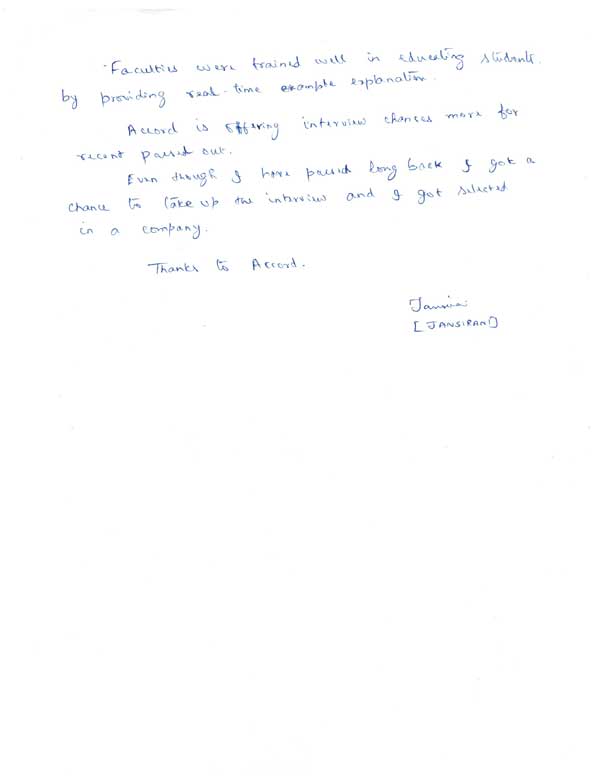 Faculties were trained well in educating students.
by providing real-time example explanation.
Accord is offering interview chances more for
recent passed out.
Even though I have passed long back I got a
chance to take up the interview and I got selected
in a company.
Thanks to Accord.
[JANSIRANI]